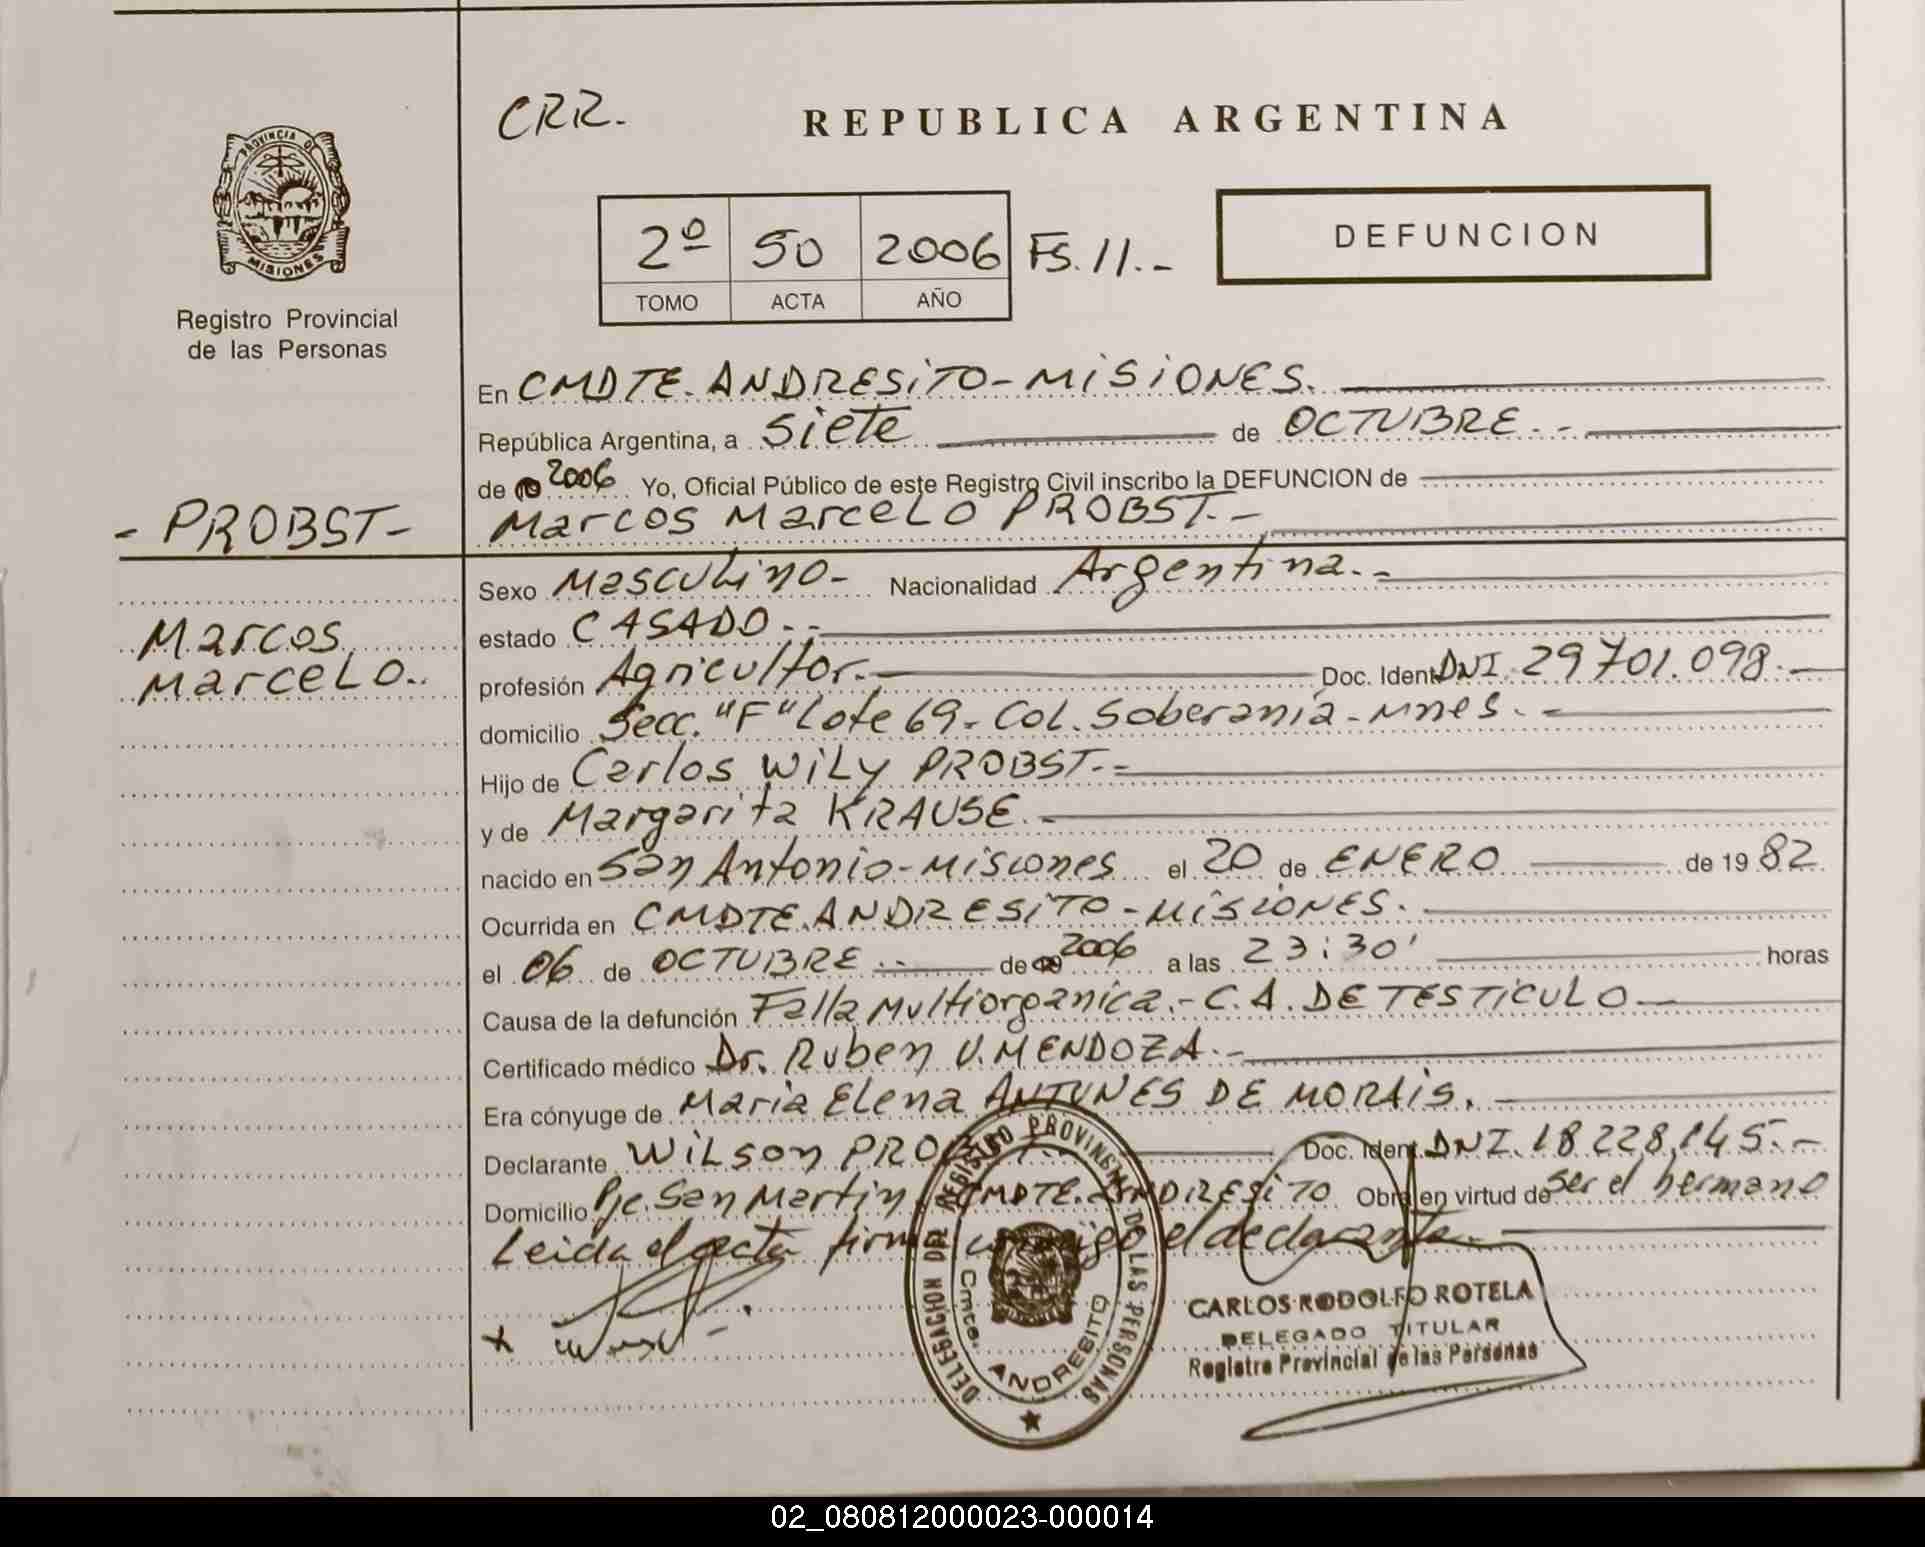 CRR.
REPUBLICA ARGENTINA
PROVINCIA DE
MISIONES
Registro Provincial
de las Personas
2º 50 2006 FS. 11.-
TOMO ACTA AÑO
DEFUNCION
En CMDTE. ANDRESITO - MISIONES.
República Argentina, a Siete de OCTUBRE.-
de 2006 Yo, Oficial Público de este Registro Civil inscribo la DEFUNCION de
- PROBST -
Marcos Marcelo PROBST.-
Sexo Masculino- Nacionalidad Argentina.-
Marcos
Marcelo..
estado CASADO.--
profesión Agricultor.- Doc. Ident. DNI. 29701.098.-
domicilio Secc. "F" Lote 69- Col. Soberanía - Mnes.-
Hijo de Carlos Wily PROBST.-
y de Margarita KRAUSE.-
nacido en San Antonio - Misiones el 20 de ENERO de 19 82
Ocurrida en CMDTE. ANDRESITO - MISIONES.
el 06 de OCTUBRE.-- de 2006 a las 23:30' horas
Causa de la defunción Falla Multiorganica.- C.A. DE TESTICULO
Certificado médico Dr. Ruben V. MENDOZA.-
Era cónyuge de Maria Elena ANTUNES DE MORAIS.
Declarante Wilson PROBST.- Doc. Ident. DNI. 18.228.145.-
Domicilio Pje. San Martin, CMDTE. ANDRESITO Obra en virtud de ser el hermano
Leida el acta firma conmigo el declarante.-
DELEGACION DEL REGISTRO PROVINCIAL DE LAS PERSONAS
Cmte. ANDRESITO
CARLOS RODOLFO ROTELA
DELEGADO TITULAR
Registro Provincial de las Personas
02_080812000023-000014